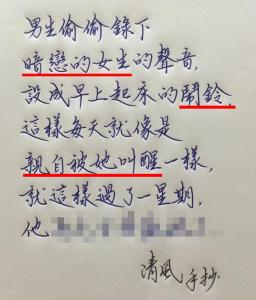 男生偷偷錄下
暗戀的女生的聲音,
設成早上起床的鬧鈴,
這樣每天就像是
親自被她叫醒一樣,
就這樣過了一星期,
他
清風手抄